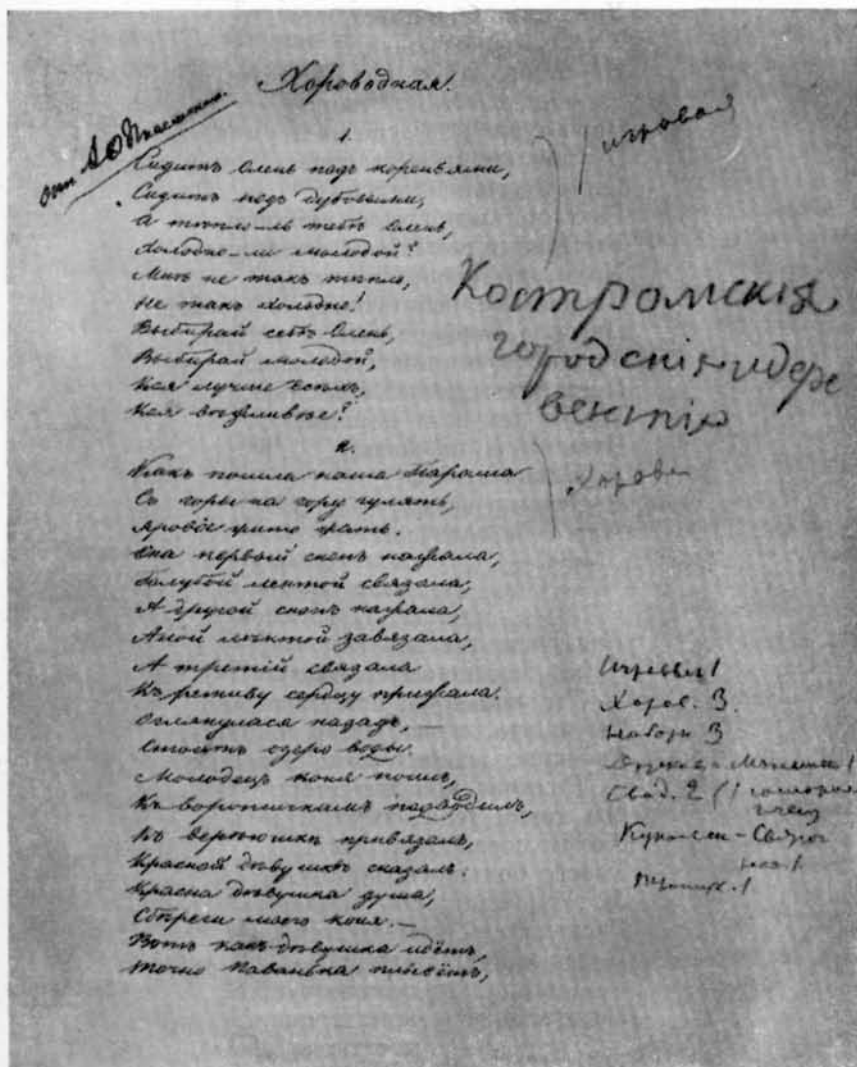 Хороводная.
от А Писемскаго
1.
игровая
Сидитъ Олень подъ кореньями,
Сидитъ подъ дубовыми,
А тепло-ль тебѣ Олень,
Холодно-ли молодой?
Мнѣ не такъ тепло,
Не такъ холодно!
Выбирай себѣ Олень,
Выбирай молодой,
Коя лучше всѣхъ,
Коя
Костромскія
городскія и дере
венскія
2.
Хорово
Какъ пошла наша Параша
Съ горы на гору гулять,
Яровое жито жать.
Она первый снопъ нажала,
Голубой лентой связала,
А другой снопъ нажала,
Аной лентой завязала,
А третій связала
Къ ретиву сердцу прижала.
Оглянулася назадъ, —
Стоитъ озеро воды.
Молодецъ коня поилъ,
Къ воротичкамъ подводилъ,
Къ вереюшки привязалъ,
Красной дѣвушкѣ сказалъ:
Красна дѣвушка душа,
Сбереги моего коня. —
Вотъ какъ дѣвушка идётъ,
Точно Паванька плывётъ,
Игровая 1
Хоров. 3.
Набор. 3
Свад. 2 (1
1